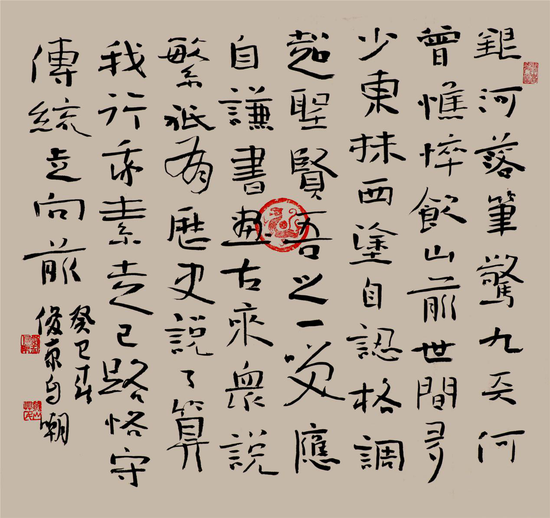 銀河落筆驚九天何
曾憔悴飲山前世間多
少東抹西塗自認格調
超聖賢吾之一笑應
自謙書畫古來衆説
繁祇有歷史説了算
我行我素走己路恪守
傳統走向前
癸巳
俊京自嘲